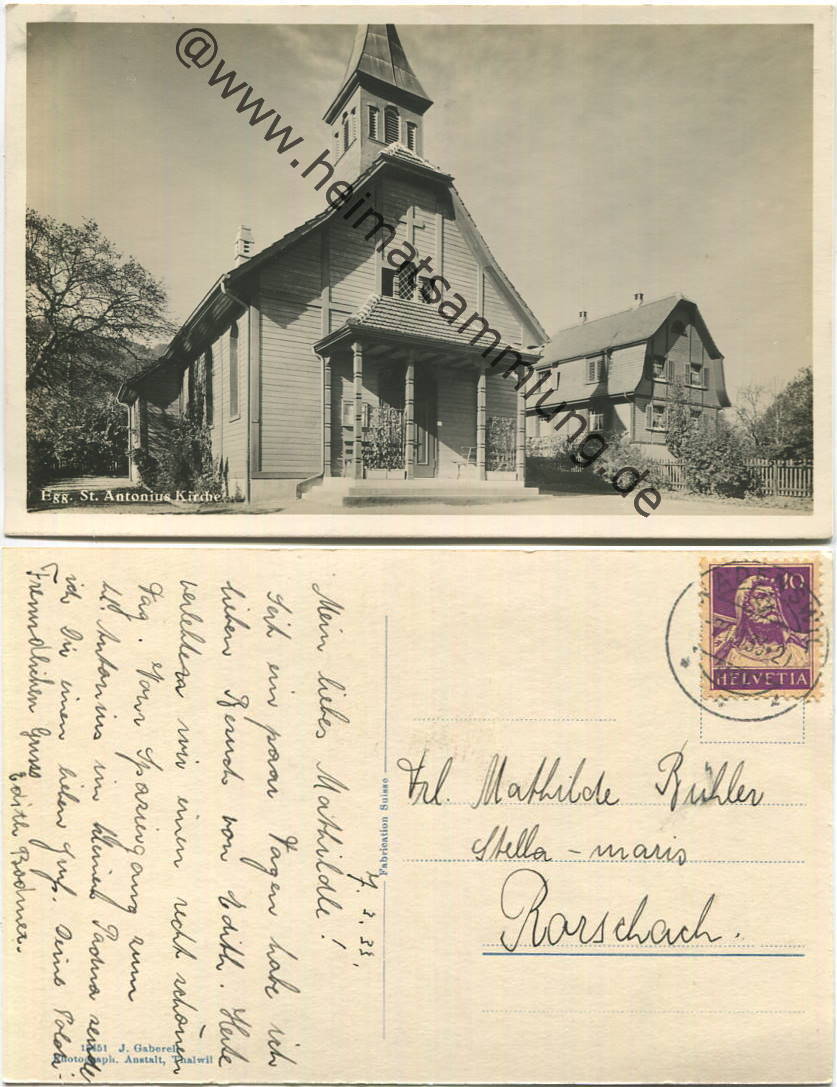 @www.heimatsammlung.de
Egg. St. Antonius Kirche
7. 3. 33.
Mein liebes Mathildle!
Seit ein paar Tagen habe ich
lieben Besuch von Edith. Heute
verlebten wir einen recht schönen
Tag. Vom Spaziergang zum
hl. Antonius im kleinen Padua sende
ich Dir einen lieben Gruß. Deine Poldi.
Freundlichen Gruss
Edith Bodmer.
J. Gaberell
Photograph. Anstalt, Thalwil
Fabrication Suisse
10
HELVETIA
Frl. Mathilde Bühler
Stella-maris
Rorschach.